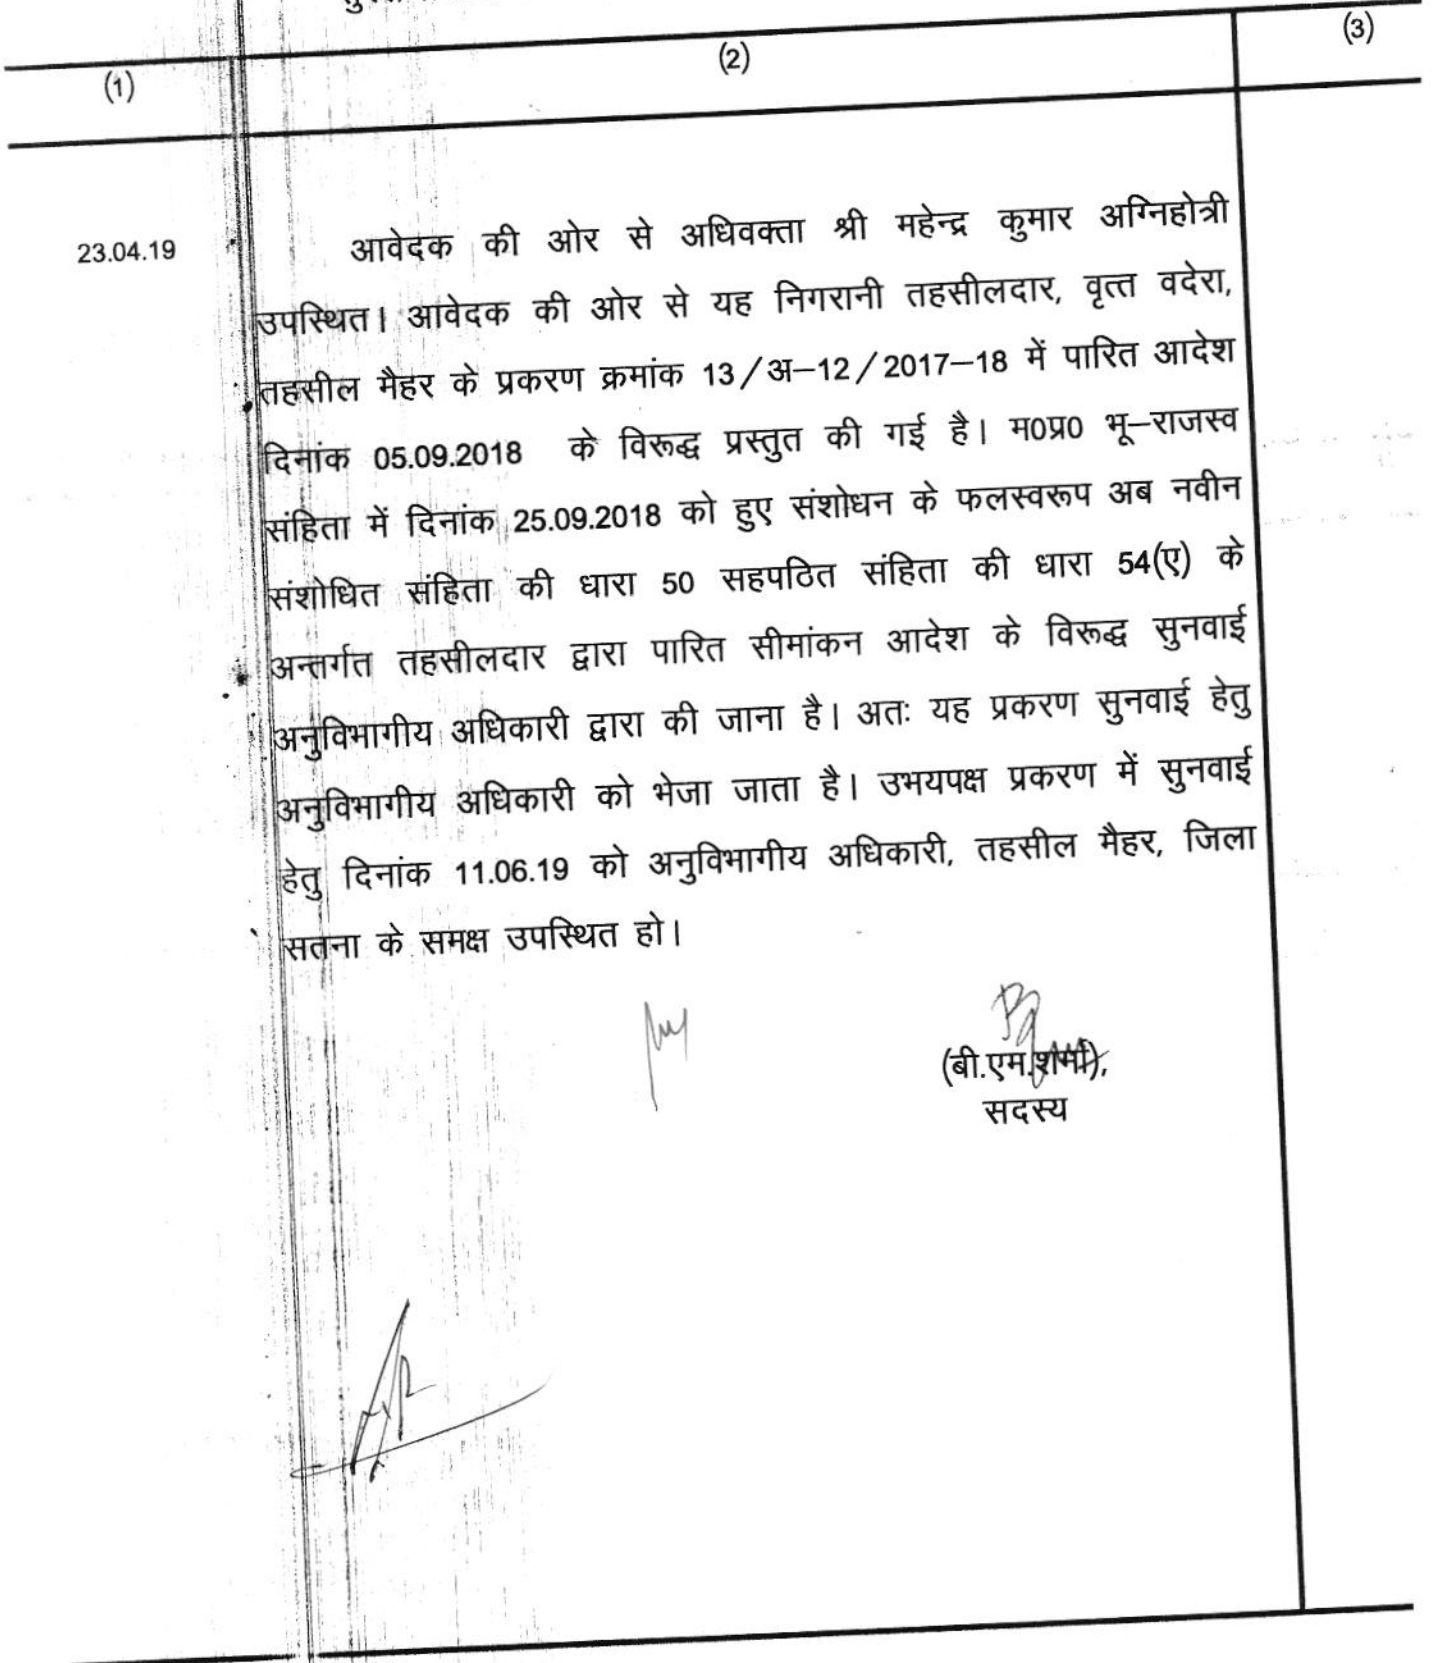 (1) (2) (3)
23.04.19 आवेदक की ओर से अधिवक्ता श्री महेन्द्र कुमार अग्निहोत्री
उपस्थित। आवेदक की ओर से यह निगरानी तहसीलदार, वृत्त वदेरा,
तहसील मैहर के प्रकरण क्रमांक 13/अ–12/2017–18 में पारित आदेश
दिनांक 05.09.2018 के विरूद्ध प्रस्तुत की गई है। म0प्र0 भू–राजस्व
संहिता में दिनांक 25.09.2018 को हुए संशोधन के फलस्वरूप अब नवीन
संशोधित संहिता की धारा 50 सहपठित संहिता की धारा 54(ए) के
अन्तर्गत तहसीलदार द्वारा पारित सीमांकन आदेश के विरूद्ध सुनवाई
अनुविभागीय अधिकारी द्वारा की जाना है। अतः यह प्रकरण सुनवाई हेतु
अनुविभागीय अधिकारी को भेजा जाता है। उभयपक्ष प्रकरण में सुनवाई
हेतु दिनांक 11.06.19 को अनुविभागीय अधिकारी, तहसील मैहर, जिला
सतना के समक्ष उपस्थित हो।
(बी.एम.शर्मा),
सदस्य